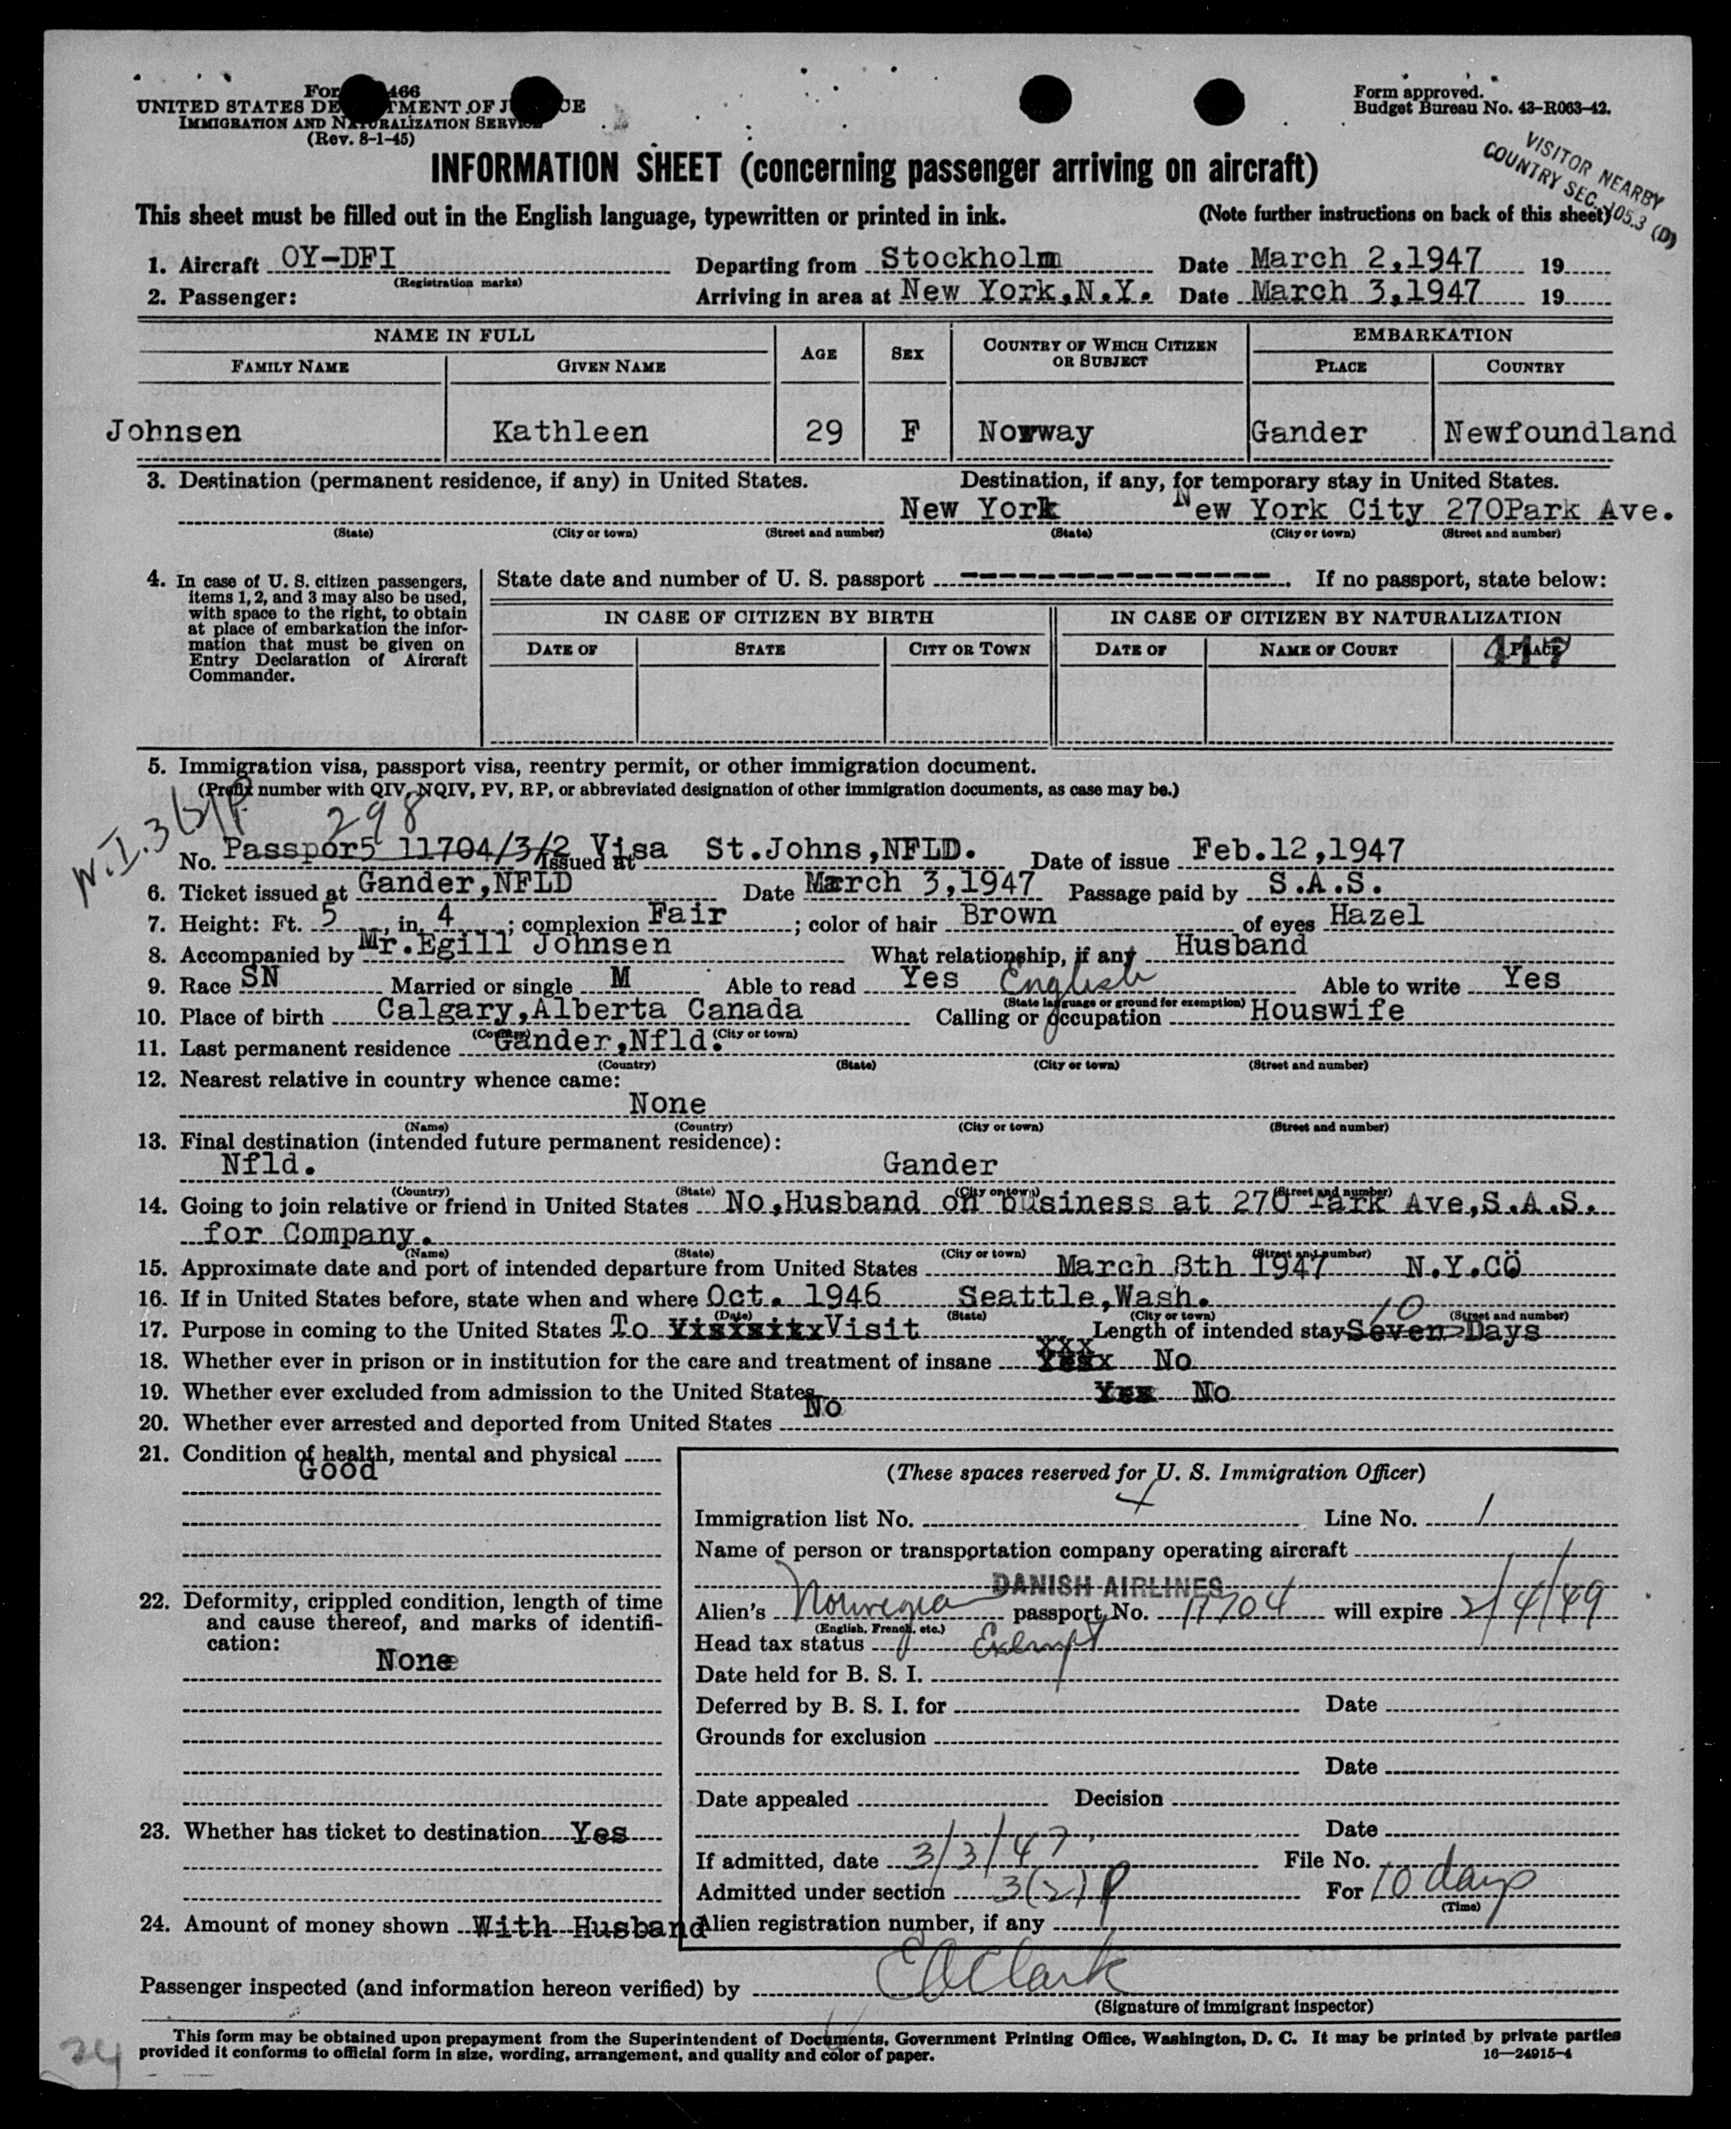 For 466
UNITED STATES DE TMENT OF J CE
IMMIGRATION AND NATURALIZATION SERVICE
(Rev. 8-1-45)
Form approved.
Budget Bureau No. 43-R063-42.
VISITOR NEARBY
COUNTRY SEC. 105.3 (D)
INFORMATION SHEET (concerning passenger arriving on aircraft)
This sheet must be filled out in the English language, typewritten or printed in ink. (Note further instructions on back of this sheet)
1. Aircraft OY-DFI Departing from Stockholm Date March 2,1947 19
(Registration marks)
2. Passenger: Arriving in area at New York,N.Y. Date March 3,1947 19
NAME IN FULL AGE SEX COUNTRY OF WHICH CITIZEN OR SUBJECT EMBARKATION
FAMILY NAME GIVEN NAME PLACE COUNTRY
Johnsen Kathleen 29 F Norway Gander Newfoundland
3. Destination (permanent residence, if any) in United States. Destination, if any, for temporary stay in United States.
New York New York City 270Park Ave.
(State) (City or town) (Street and number) (State) (City or town) (Street and number)
4. In case of U. S. citizen passengers, items 1, 2, and 3 may also be used, with space to the right, to obtain at place of embarkation the information that must be given on Entry Declaration of Aircraft Commander.
State date and number of U. S. passport ---------------- If no passport, state below:
IN CASE OF CITIZEN BY BIRTH IN CASE OF CITIZEN BY NATURALIZATION
DATE OF STATE CITY OR TOWN DATE OF NAME OF COURT PLACE
5. Immigration visa, passport visa, reentry permit, or other immigration document.
(Prefix number with QIV, NQIV, PV, RP, or abbreviated designation of other immigration documents, as case may be.)
298
No. Passpor5 11704/3/2 Visa Issued at St.Johns,NFLD. Date of issue Feb.12,1947
6. Ticket issued at Gander,NFLD Date March 3,1947 Passage paid by S.A.S.
7. Height: Ft. 5, in. 4; complexion Fair; color of hair Brown of eyes Hazel
8. Accompanied by Mr.Egill Johnsen What relationship, if any Husband
9. Race SN Married or single M Able to read Yes English Able to write Yes
(State language or ground for exemption)
10. Place of birth Calgary,Alberta Canada Calling or occupation Houswife
(Country) (City or town)
11. Last permanent residence Gander,Nfld.
(Country) (State) (City or town) (Street and number)
12. Nearest relative in country whence came:
None
(Name) (Country) (City or town) (Street and number)
13. Final destination (intended future permanent residence):
Nfld. Gander
(Country) (State) (City or town) (Street and number)
14. Going to join relative or friend in United States No,Husband on business at 270 Park Ave,S.A.S.
for Company.
(Name) (State) (City or town) (Street and number)
15. Approximate date and port of intended departure from United States March 8th 1947 N.Y.CÖ
16. If in United States before, state when and where Oct. 1946 Seattle,Wash.
(Date) (State) (City or town) (Street and number)
17. Purpose in coming to the United States To Visit Length of intended stay Seven 10 Days
18. Whether ever in prison or in institution for the care and treatment of insane No
19. Whether ever excluded from admission to the United States Yes No
20. Whether ever arrested and deported from United States No
21. Condition of health, mental and physical
Good
22. Deformity, crippled condition, length of time and cause thereof, and marks of identification:
None
23. Whether has ticket to destination Yes
24. Amount of money shown With Husband
(These spaces reserved for U. S. Immigration Officer)
Immigration list No. Line No. 1
Name of person or transportation company operating aircraft
DANISH AIRLINES
Alien's Norwegian passport No. 11704 will expire 2/4/49
(English, French, etc.)
Head tax status Exempt
Date held for B. S. I.
Deferred by B. S. I. for Date
Grounds for exclusion
Date
Date appealed Decision
Date
If admitted, date 3/3/47 File No.
Admitted under section 3(2) P For 10 days
(Time)
Alien registration number, if any
Passenger inspected (and information hereon verified) by E A Clark
(Signature of immigrant inspector)
This form may be obtained upon prepayment from the Superintendent of Documents, Government Printing Office, Washington, D. C. It may be printed by private parties
provided it conforms to official form in size, wording, arrangement, and quality and color of paper. 16—24915-4
24